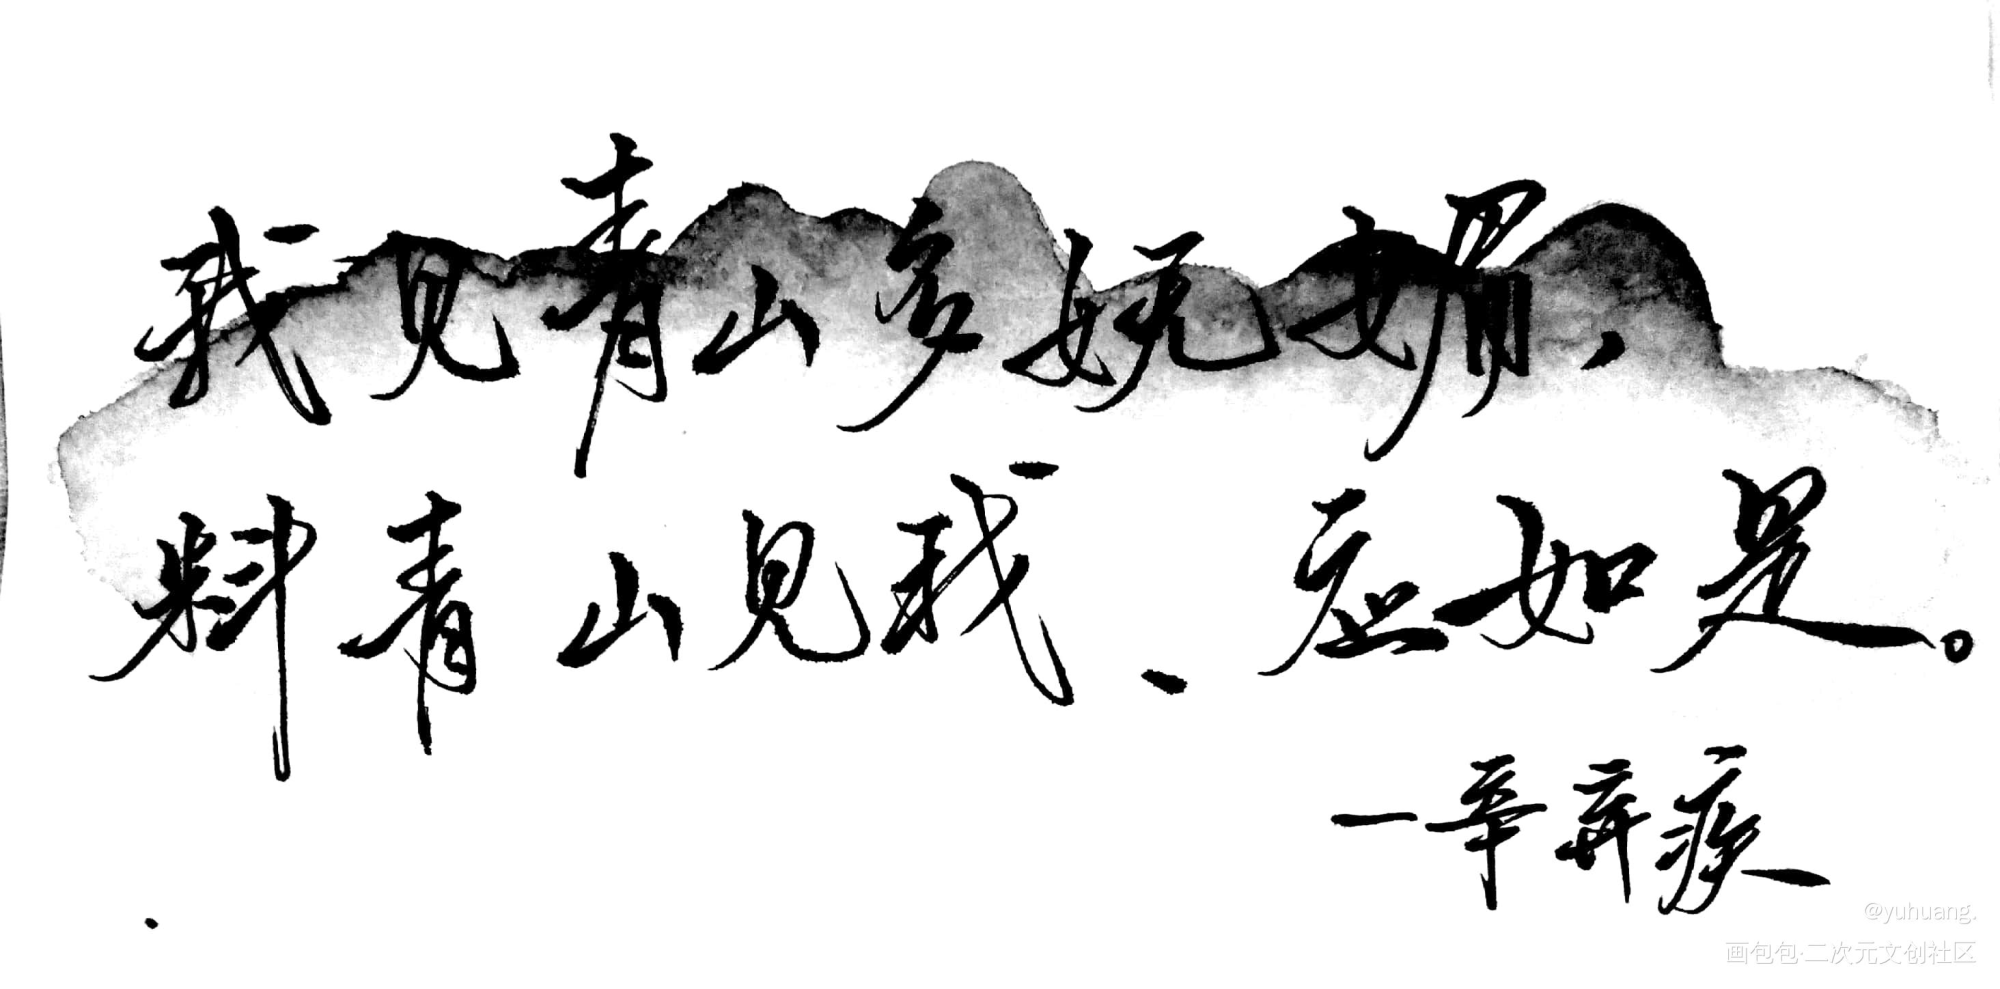 我见青山多妩媚，
料青山见我、应如是。
一辛弃疾
@yuhuang.
画包包·二次元文创社区